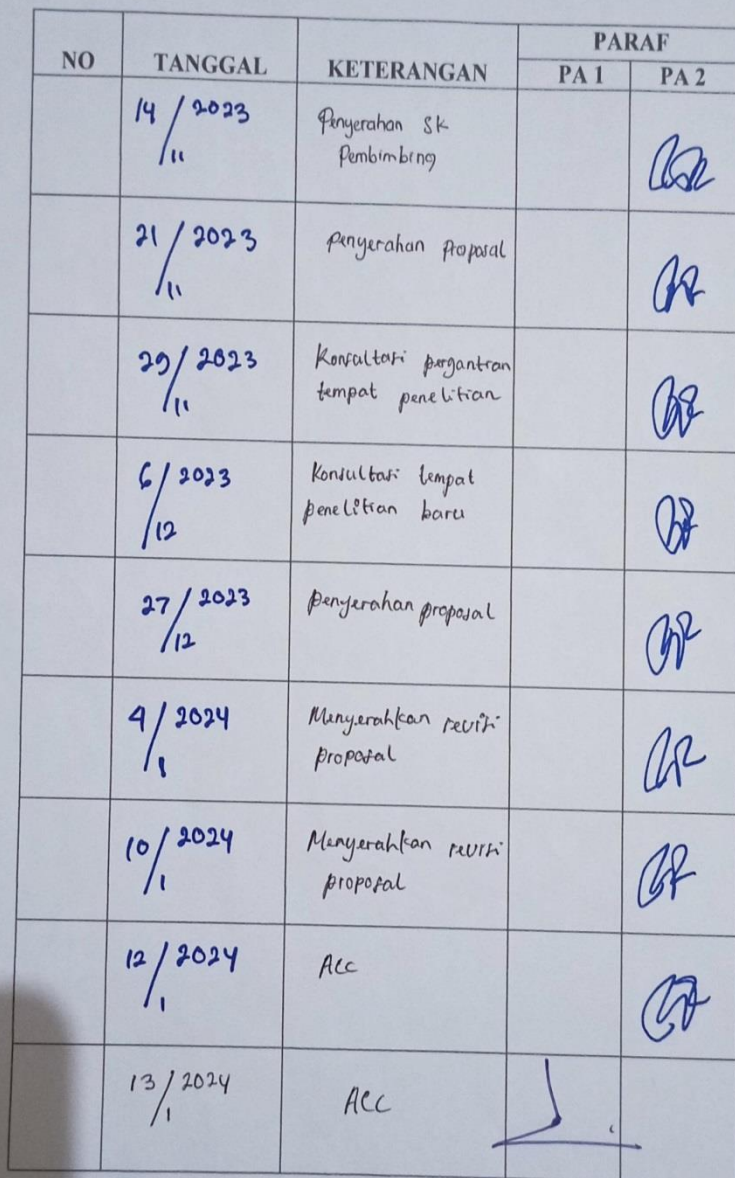 NO TANGGAL KETERANGAN PARAF
PA 1 PA 2
14/11 2023 Penyerahan SK
Pembimbing
21/11 2023 Penyerahan Proposal
29/11 2023 Konsultasi pergantian
tempat penelitian
6/12 2023 Konsultasi tempat
penelitian baru
27/12 2023 Penyerahan proposal
4/1 2024 Menyerahkan revisi
proposal
10/1 2024 Menyerahkan revisi
proposal
12/1 2024 Acc
13/1 2024 Acc